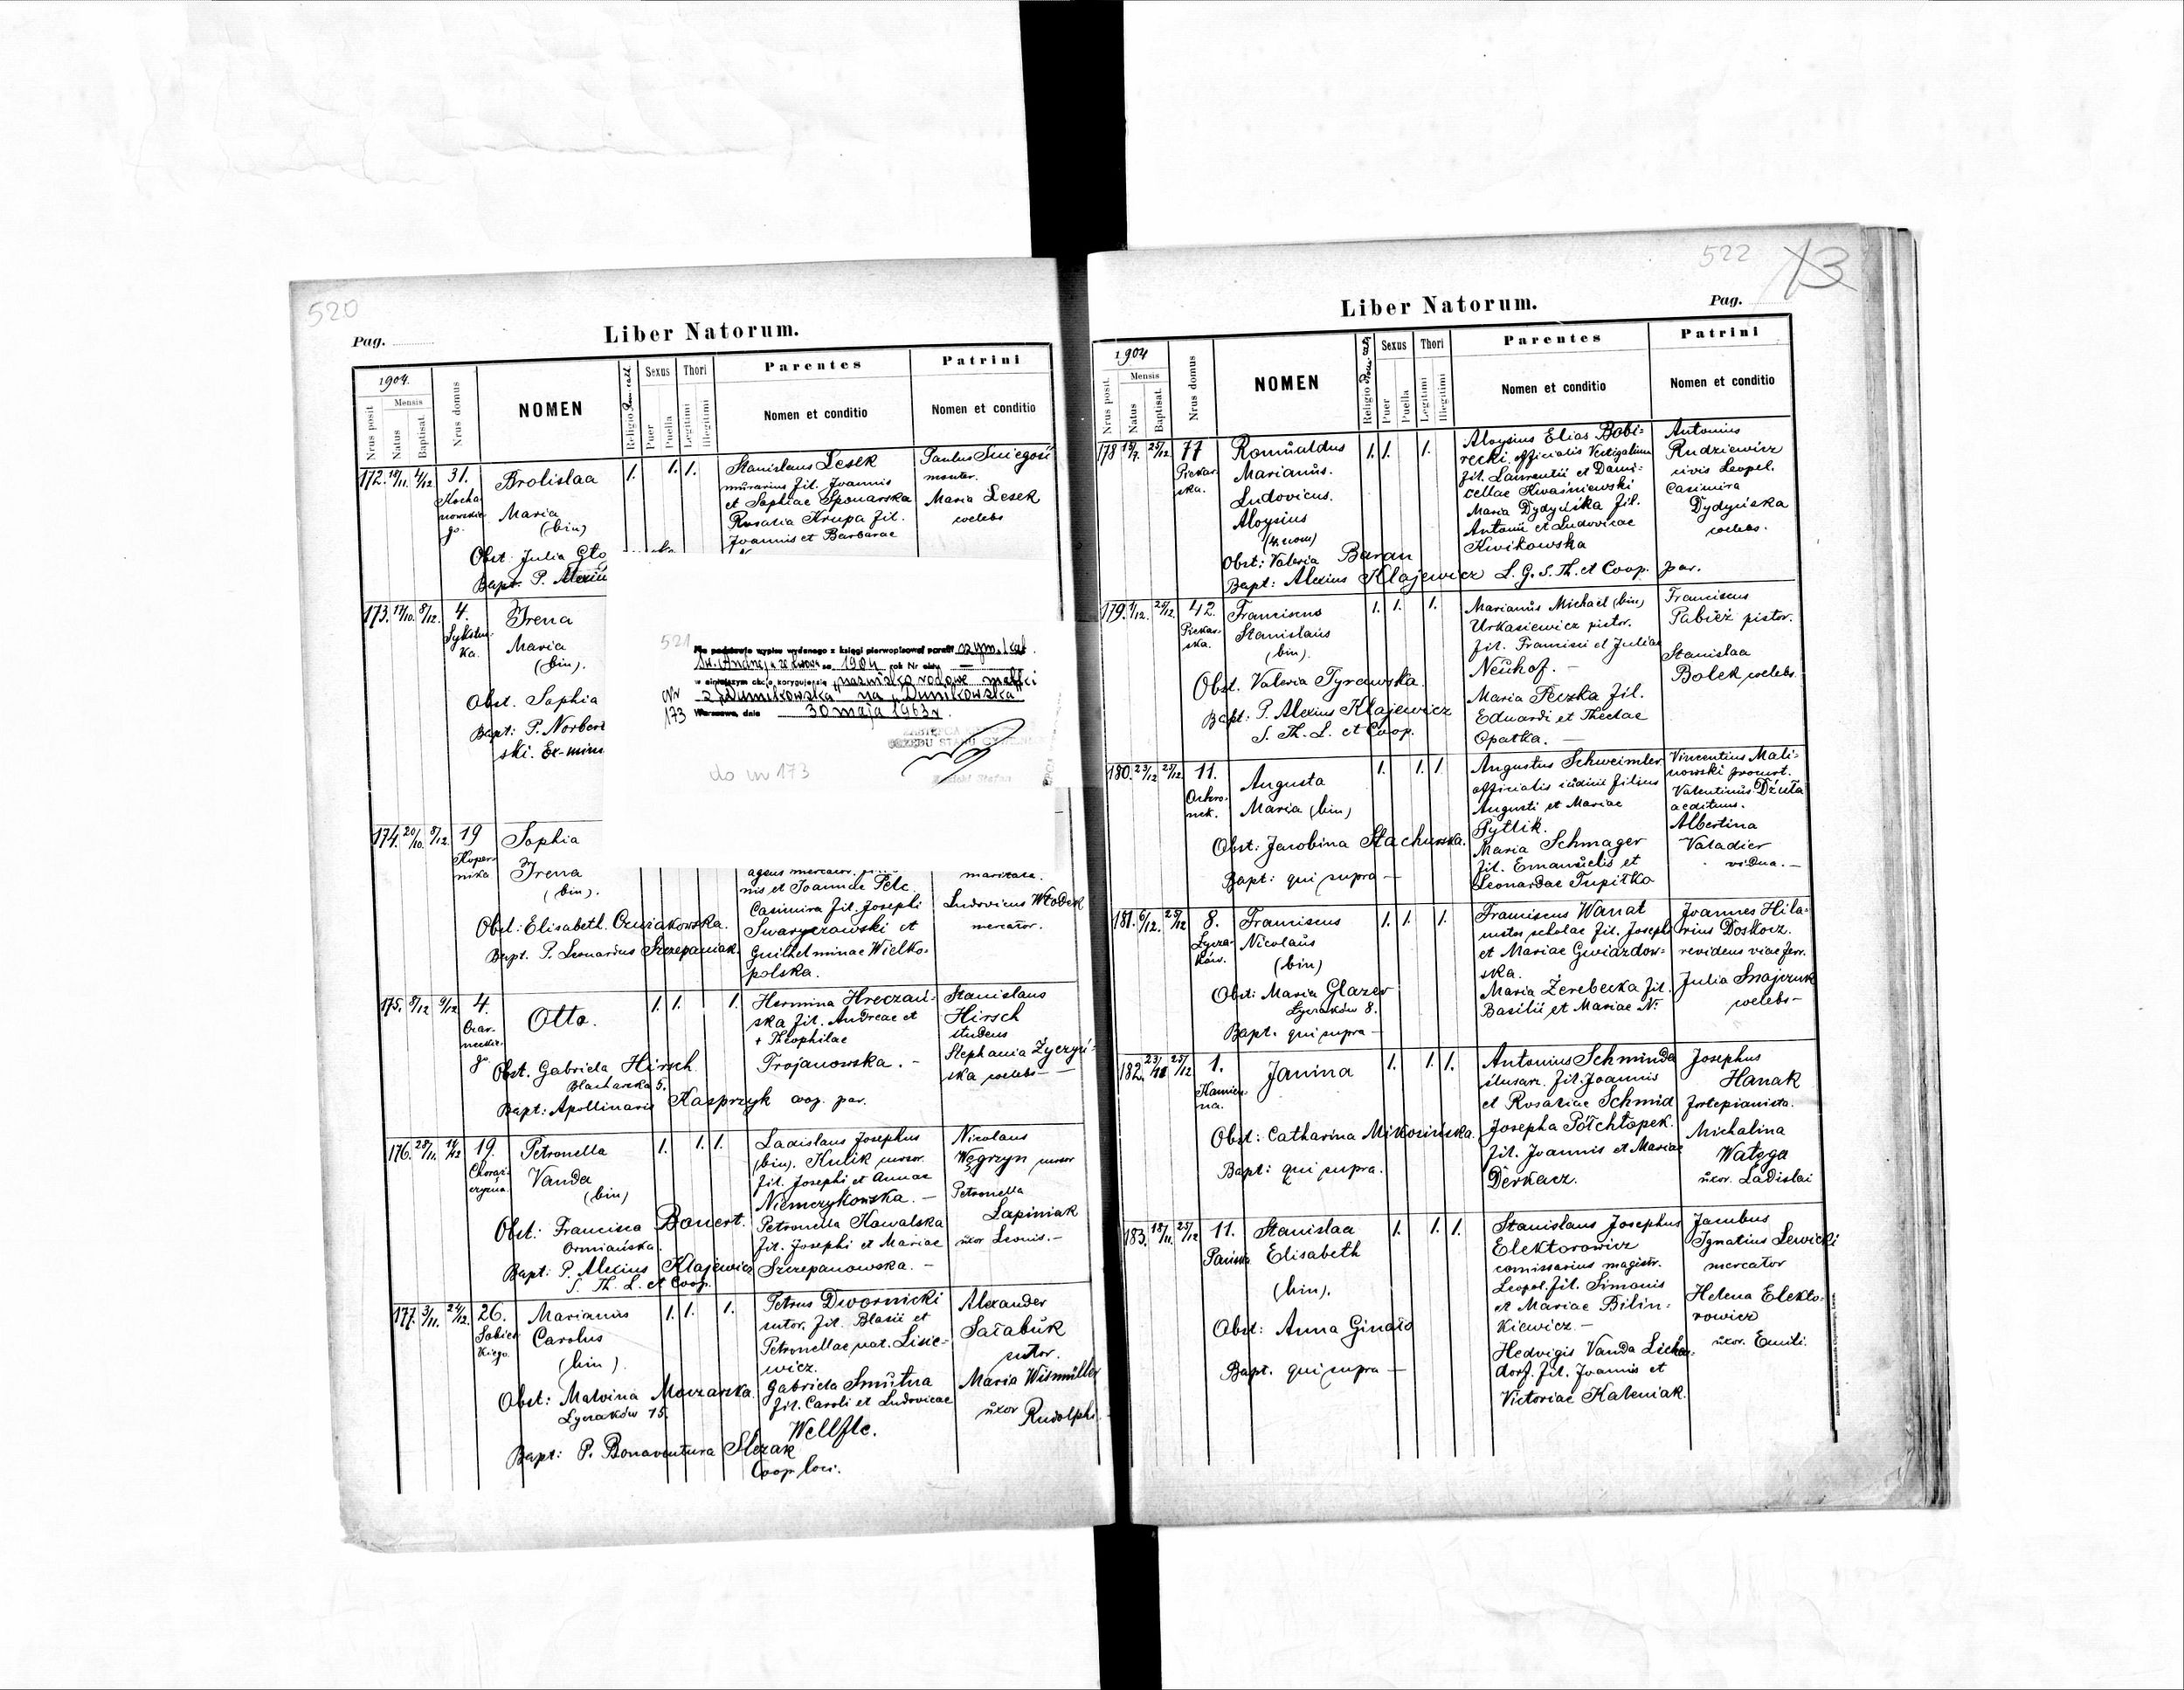 520
Pag.
Liber Natorum.
1904.
Nrus posit.
Mensis
Natus
Baptisat.
Nrus domus
NOMEN
Religio Rom. cath.
Sexus
Puer
Puella
Thori
Legitimi
Illegitimi
Parentes
Nomen et conditio
Patrini
Nomen et conditio
172.
31.
Brolislaa
Maria
(bin)
Obst. Julia Gło
Bapt. P. Alexiu
1. 1. 1.
Stanislaus Lesek
murarius fil. Joannis
et Sophiae Sponarska
Rosalia Krupa fil.
Joannis et Barbarae
Paulus
monter.
Maria Lesek
coelebs
173. 17/10. 8/12.
4.
Irena
Maria
(bin).
Obst. Sophia
Bapt: P. Norbert
ski. Ex-min
521
Na podstawie wypisu wydanego z księgi pierwopisowej parafii rzym. kat.
Św. Andrzeja ze Lwowa za 1904 rok Nr aktu —
w niniejszym akcie koryguje się "nazwisko rodowe matki
z "Dumikowska" na "Dunikowska"
Nr
173
Warszawa, dnia 30 maja 1963 r.
do nr 173
174. 20/10. 8/12.
19
Koper-
nika
Sophia
Irena
(bin).
Obst: Elisabeth
Bapt. P. Leonardus Szczepaniak.
agens mercator.
nis et Joannae Pelc.
Casimira fil. Josephi
Swaryczowski et
Guilhelminae Wielko-
polska.
maritata.
Ludovicus Włodek
mercator.
175. 8/12 9/12
4.
Czar-
neckie-
go.
Otto.
1. 1. 1.
Hermina Hreczań-
ska fil. Andreae et
+ Theophilae
Trojanowska. –
Stanislaus
Hirsch
studens
Stephania Zyczyń-
ska coelebs –
Obst. Gabriela Hirsch
Blacharska 5.
Bapt: Apollinaris Kasprzyk coop. par.
176. 28/11. 14/12
19.
Petronella
Vanda
(bin)
1. 1. 1.
Ladislaus Josephus
(bin). Kulik cursor
fil. Josephi et Annae
Niemczykowska. –
Petronella Kowalska
fil. Josephi et Mariae
Szczepanowska. –
Nicolaus
Węgrzyn cursor
Petronella
Lapiniak
uxor Leonis. –
Obst: Francisca Bonert.
Ormiańska.
Bapt: P. Alexius Klajewicz
S. Th. L. et Coop.
177. 3/11. 24/12.
26.
Sobies
kiego.
Marianus
Carolus
(bin).
1. 1. 1.
Petrus Dwornicki
sutor, fil. Blasii et
Petronellae nat. Lisie-
wicz.
Gabriela Smutna
fil. Caroli et Ludovicae
Wellfle.
Alexander
Sałabuk
sutor.
Maria Wismüller
uxor Rudolphi
Obst: Malvina Morzarska.
Łyczaków 75.
Bapt: P. Bonaventura Slezak
Coop. loci.
522
Liber Natorum.
Pag.
1904
Nrus posit.
Mensis
Natus
Baptisat.
Nrus domus
NOMEN
Religio Rom. cath.
Sexus
Puer
Puella
Thori
Legitimi
Illegitimi
Parentes
Nomen et conditio
Patrini
Nomen et conditio
178 25/12
77
Piekar-
ska.
Romualdus
Marianus.
Ludovicus.
Aloysius
(4. nom)
1. 1. 1.
Aloysius Elias Bobi-
recki, officialis Vectigalium
fil. Laurentii et Dami-
cellae Kwaśniewski
Maria Dydyńska fil.
Antonii et Ludovicae
Kwikowska
Antonius
Rudziewicz
civis Leopol.
Casimira
Dydyńska
coelebs.
Obst: Valeria Baran
Bapt: Alexius Klajewicz L. G. S. Th. et Coop. par.
179. 1/12. 25/12.
42.
Piekar-
ska.
Franciscus
Stanislaus
(bin).
1. 1. 1.
Marianus Michael (bin)
Urkasiewicz pistor.
fil. Francisci et Juliae
Neuhof. –
Maria Peczka fil.
Eduardi et Theclae
Opatka. –
Franciscus
Pabież pistor.
Stanislaa
Bolek coelebs.
Obst. Valeria Tyrawska.
Bapt: P. Alexius Klajewicz
S. Th. L. et Coop.
180. 23/12 25/12.
11.
Ochro-
nek.
Augusta
Maria (bin)
1. 1. 1.
Augustus Schweimler
officialis filius
Augusti et Mariae
Pytlik.
Maria Schmager
fil. Emanuelis et
Leonardae Tupitko
Vincentius Mali-
nowski
Valentinus
aedituus.
Albertina
Valadier
vidua. –
Obst: Jacobina Stachurska.
Bapt: qui supra –
181. 6/12. 25/12
8.
Łycza-
ków.
Franciscus
Nicolaus
(bin)
1. 1. 1.
Franciscus Wanat
custos scholae fil. Joseph
et Mariae Gwiazdow-
ska.
Maria Żerebecka fil.
Basilii et Mariae N.
Joannes Hila-
rius Doskocz.
revidens viae ferr.
Julia Snajczuk
coelebs –
Obst: Maria Glazer
Łyczaków 8.
Bapt. qui supra –
182. 25/12
1.
Kamien-
na.
Janina
1. 1. 1.
Antonius Schminda
slusarz. fil. Joannis
et Rosaliae Schmid
Josepha Półchłopek.
fil. Joannis et Mariae
Derkacz.
Josephus
Hanak
fortepianista.
Michalina
uxor. Ladislai
Obst: Catharina Mikosińska.
Bapt: qui supra.
183. 18/11. 25/12
11.
Pańska
Stanislaa
Elisabeth
(bin).
1. 1. 1.
Stanislaus Josephus
Elektorowicz
comissarius magistr.
Leopol. fil. Simonis
et Mariae Bilin-
kiewicz. –
Hedvigis Vanda
dorf. fil. Joannis et
Victoriae Kaleniak.
Jacobus
Ignatius Lewicki
mercator
Helena Elekto-
rowicz
uxor. Emili.
Obst: Anna
Bapt. qui supra –